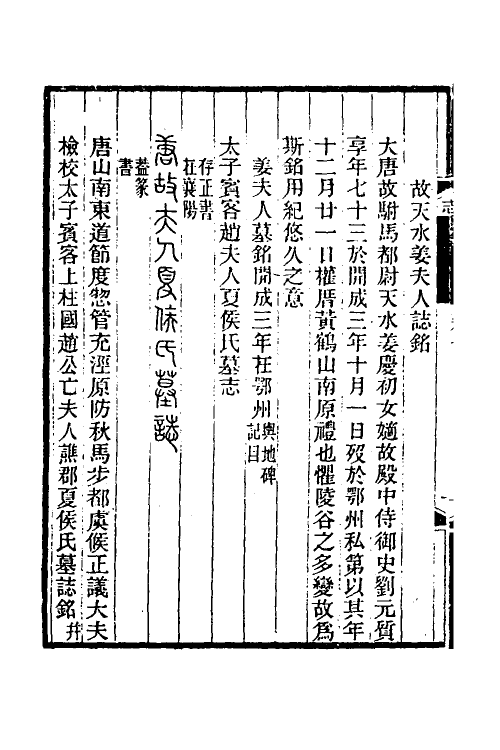 故天水姜夫人誌銘
大唐故駙馬都尉天水姜慶初女適故殿中侍御史劉元質
享年七十三於開成三年十月一日歿於鄂州私第以其年
十二月廿一日權厝黃鶴山南原禮也懼陵谷之多變故爲
斯銘用紀悠久之意
姜夫人墓銘開成三年在鄂州輿地碑
記目
太子賓客趙夫人夏侯氏墓志
存正書
在襄陽
唐故夫人夏侯氏墓誌
蓋篆
書
唐山南東道節度惣管充涇原防秋馬步都虞候正議大夫
檢校太子賓客上柱國趙公亡夫人譙郡夏侯氏墓誌銘并